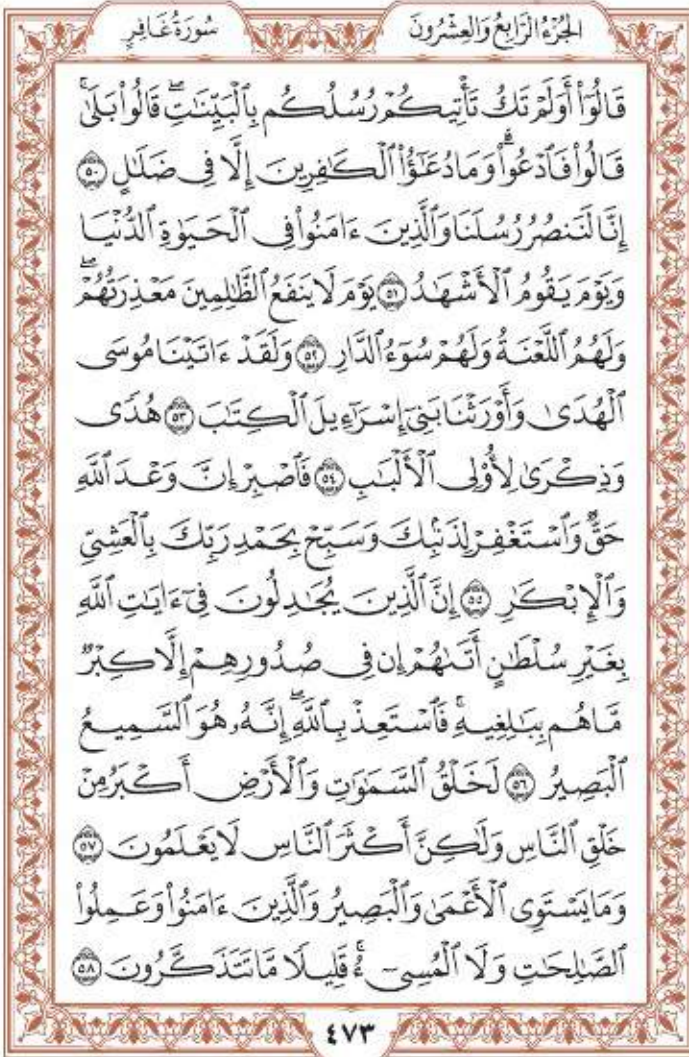 الجُزْءُ الرَّابِعُ وَالعِشْرُونَ سُورَةُ غَافِرٍ
قَالُوٓا۟ أَوَلَمْ تَكُ تَأْتِيكُمْ رُسُلُكُم بِٱلْبَيِّنَـٰتِۖ قَالُوا۟ بَلَىٰۚ
قَالُوا۟ فَٱدْعُوا۟ۗ وَمَا دُعَـٰٓؤُا۟ ٱلْكَـٰفِرِينَ إِلَّا فِى ضَلَـٰلٍ ٥٠
إِنَّا لَنَنصُرُ رُسُلَنَا وَٱلَّذِينَ ءَامَنُوا۟ فِى ٱلْحَيَوٰةِ ٱلدُّنْيَا
وَيَوْمَ يَقُومُ ٱلْأَشْهَـٰدُ ٥١ يَوْمَ لَا يَنفَعُ ٱلظَّـٰلِمِينَ مَعْذِرَتُهُمْۖ
وَلَهُمُ ٱللَّعْنَةُ وَلَهُمْ سُوٓءُ ٱلدَّارِ ٥٢ وَلَقَدْ ءَاتَيْنَا مُوسَى
ٱلْهُدَىٰ وَأَوْرَثْنَا بَنِىٓ إِسْرَٰٓءِيلَ ٱلْكِتَـٰبَ ٥٣ هُدًى
وَذِكْرَىٰ لِأُو۟لِى ٱلْأَلْبَـٰبِ ٥٤ فَٱصْبِرْ إِنَّ وَعْدَ ٱللَّهِ
حَقٌّ وَٱسْتَغْفِرْ لِذَنۢبِكَ وَسَبِّحْ بِحَمْدِ رَبِّكَ بِٱلْعَشِىِّ
وَٱلْإِبْكَـٰرِ ٥٥ إِنَّ ٱلَّذِينَ يُجَـٰدِلُونَ فِىٓ ءَايَـٰتِ ٱللَّهِ
بِغَيْرِ سُلْطَـٰنٍ أَتَىٰهُمْ إِن فِى صُدُورِهِمْ إِلَّا كِبْرٌ
مَّا هُم بِبَـٰلِغِيهِۚ فَٱسْتَعِذْ بِٱللَّهِۖ إِنَّهُۥ هُوَ ٱلسَّمِيعُ
ٱلْبَصِيرُ ٥٦ لَخَلْقُ ٱلسَّمَـٰوَٰتِ وَٱلْأَرْضِ أَكْبَرُ مِنْ
خَلْقِ ٱلنَّاسِ وَلَـٰكِنَّ أَكْثَرَ ٱلنَّاسِ لَا يَعْلَمُونَ ٥٧
وَمَا يَسْتَوِى ٱلْأَعْمَىٰ وَٱلْبَصِيرُ وَٱلَّذِينَ ءَامَنُوا۟ وَعَمِلُوا۟
ٱلصَّـٰلِحَـٰتِ وَلَا ٱلْمُسِىٓءُۚ قَلِيلًا مَّا تَتَذَكَّرُونَ ٥٨
٤٧٣